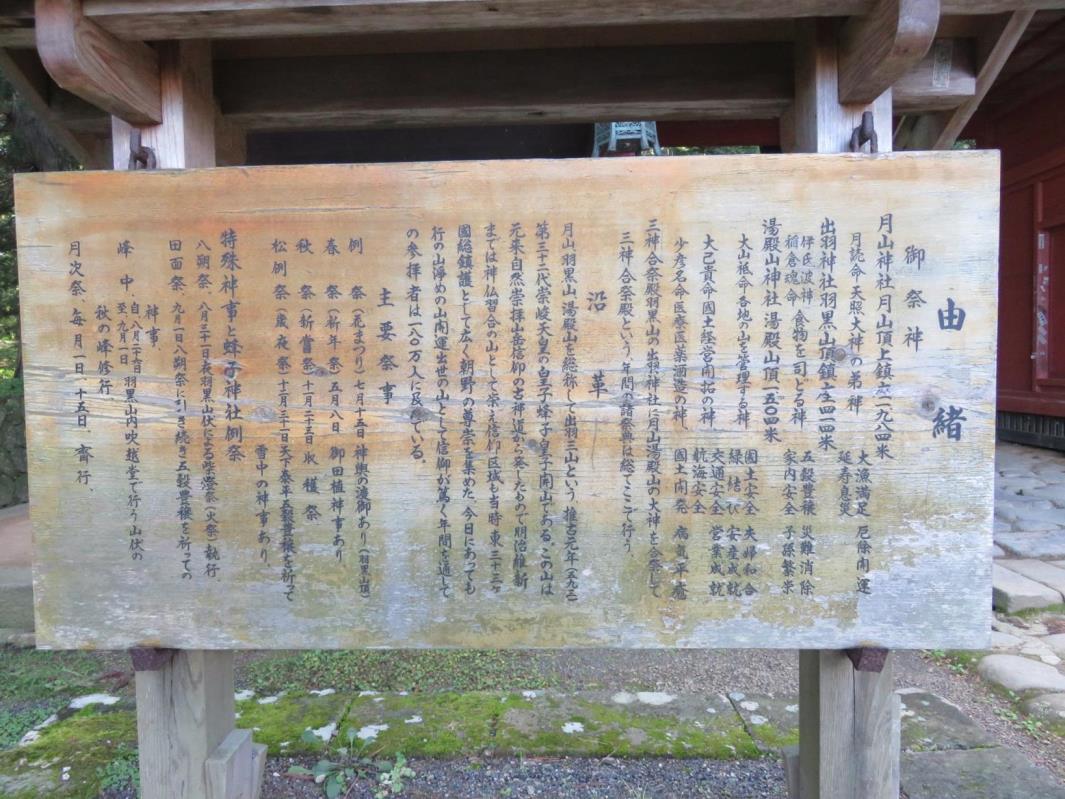 由緒
御祭神
月山神社月山頂上鎮座一九八四米
月読命天照大神の弟神
大漁満足 厄除開運
延寿息災
出羽神社羽黒山頂鎮座四四米
伊氐波神
稲倉魂命 食物を司どる神
五穀豊穣 災難消除
家内安全 子孫繁栄
湯殿山神社湯殿山頂一五〇四米
大山祗命各地の山を管理する神
国土安全 夫婦和合
縁結び 安産成就
大己貴命國土経営開拓の神
交通安全 営業成就
航海安全
少彦名命医療医薬酒造の神
國土開発 病気平癒
三神合祭殿羽黒山の出羽神社に月山湯殿山の大神を合祭して
三神合祭殿という、年間の諸祭典は総てここで行う。
沿革
月山羽黒山湯殿山を総称して出羽三山という 推古元年(五九三)
第三十二代崇峻天皇の皇子蜂子皇子開山である。この山は
元来自然崇拝山岳信仰の古神道から発したもので明治維新
までは神仏習合の山として栄え信仰区域も当時東三十三ヶ
國総鎮護として広く朝野の尊崇を集めた、今日にあっても
行の山浄めの山開運出世の山として信仰が篤く年間を通して
の参拝者は一八〇万人に及んでいる。
主要祭事
例祭(花まつり)七月十五日 神輿の渡御あり(羽黒山頂)
春祭(祈年祭)五月八日 御田植神事あり
秋祭(新嘗祭)十一月二十三日 収穫祭
松例祭(歳夜祭)十二月三十一日 天下泰平五穀豊穣を祈って
雪中の神事あり、
特殊神事と蜂子神社例祭
八朔祭、八月三十一日夜羽黒山伏による柴燈祭(火祭)執行、
田面祭、九月一日八朔祭に引き続き五穀豊穣を祈っての
神事、
峰中、自八月二十五日
至九月一日 羽黒山内吹越堂で行う山伏の
秋の峰修行、
月次祭、毎月一日、十五日、斎行、